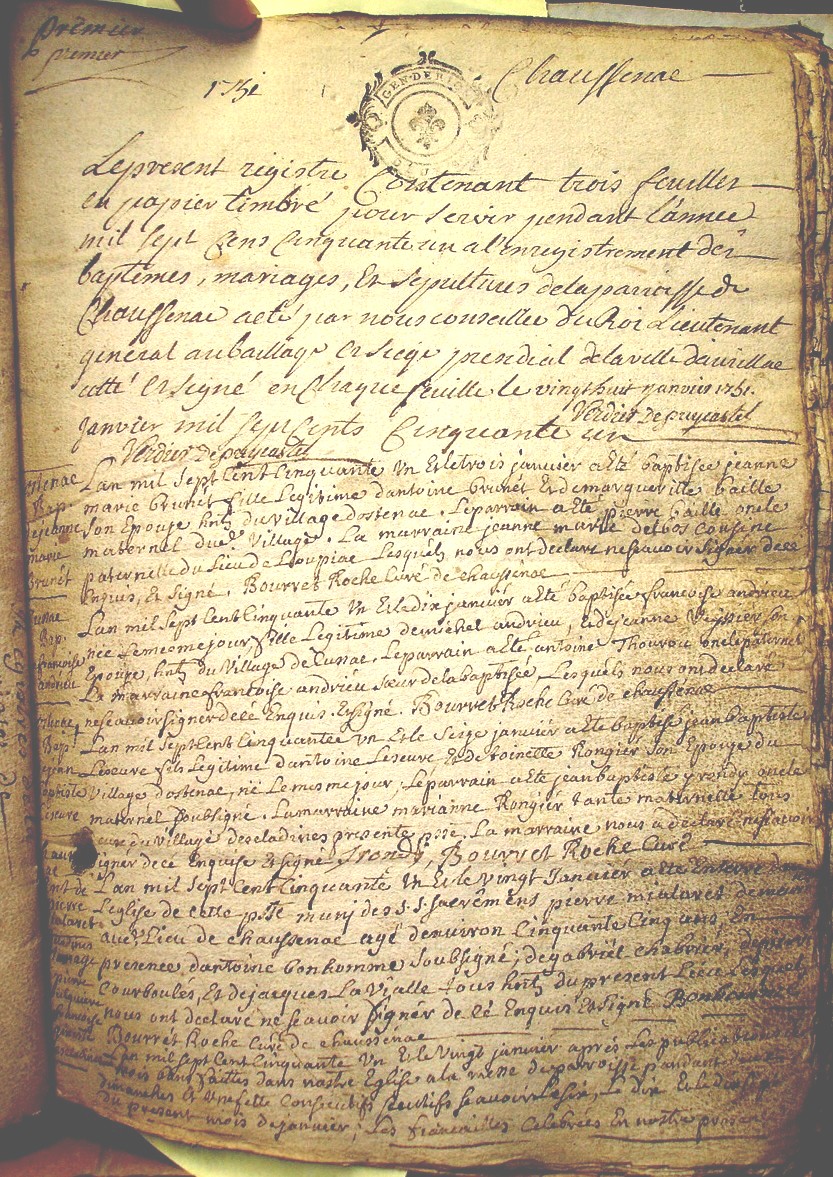 Premier
premier
1751
Chaussenac
GEN. DE RIOM
Le present registre Contenant trois feuilles
en papier timbré pour servir pendant l'annee
mil sept Cens Cinquante un a l'enregistrement des
baptêmes, mariages, Et sepultures de la parroisse de
Chaussenac a eté par nous conseiller du Roi Lieutenant
general au baillage Et siege presidial de la ville d'aurillac
cotté Et signé en Chaque feuille le vingt huit janvier 1751.
Verdier De puycastel
Janvier mil sept Cents Cinquante un
Verdier De puycastel
ostenac
Bap.
de jeanne
marie
brunet
L'an mil sept Cent Cinquante un Et le trois janvier a Eté baptisée jeanne
marie brunet fille Legitime d'antoine brunet Et de marguerite baille
son Epouse hnts du village d'ostenac. Le parrain a Eté pierre baille oncle
maternel dud. village. La marraine jeanne marie delbos cousine
paternelle du Lieu de Loupiac Lesquels nous ont declaré ne scavoir signer de ce
Enquis, Et signé. Bourret Roche Curé de chaussenac
Bap.
françoise
andrieu
L'an mil sept Cent Cinquante un Et le dix janvier a Eté baptisée françoise andrieu
née Le meme jour, fille Legitime de michel andrieu, et de jeanne Veyssier son
Epouse, hnts du village de . Le parrain a Eté antoine Thouron oncle paternel
La marraine françoise andrieu sœur de la baptisée, Lesquels nous ont declaré
ne scavoir signer de ce Enquis. Et signé. Bourret Roche Curé de chaussenac
ostenac
Bap.
jean
baptiste
Leseure
L'an mil sept Cent Cinquante un Et le seize janvier a Eté baptisé jean baptiste
Leseure fils Legitime d'antoine Leseure Et de toinette Rongier son Epouse du
village d'ostenac, né Le meme jour, Le parrain a Eté jean baptiste oncle
maternel soubsigné. La marraine marianne Rongier tante maternelle tous
du village des cladines presente psse. La marraine nous a declaré ne scavoir
signer de ce Enquise Et signé Bourret Roche Curé
L'an mil sept Cent Cinquante un Et le vingt Janvier a Eté Enterré dans
L'eglise de cette psse muni des s.s. sacremens pierre mialaret demeurant
aud. Lieu de chaussenac agé d'environ Cinquante Cinq ans, En
presence d'antoine bonhomme soubsigné, de gabriel chabrier,
Courboulés, Et de jacques La vialle tous hnts du present Lieu Lesquels
nous ont declaré ne scavoir signer de ce Enquis Et signé Bonhomme
Bourret Roche Curé de chaussenac
L'an mil sept Cent Cinquante un Et le vingt janvier après Les publications de
trois bans faittes dans nostre Eglise a la messe de parroisse pendant deux
dimanches Et une fette Consecutifs scavoir Le six, Le dix Et le dix sept
du present mois de janvier; Les fiançailles Celebrées En nostre presence